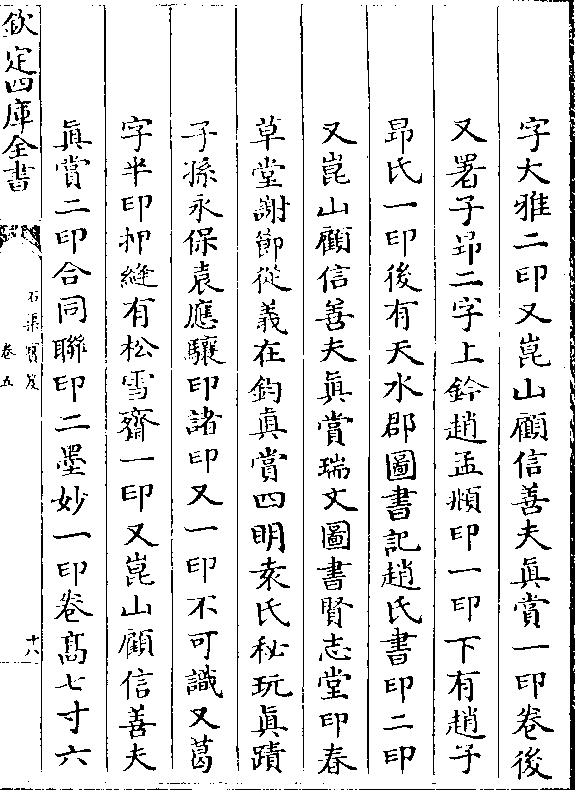 字大雅二印又崑山顧信善夫眞賞一印卷後
又署子昻二字上鈐趙孟頫印一印下有趙子
昻氏一印後有天水郡圖書記趙氏書印二印
又崑山顧信善夫眞賞瑞文圖書賢志堂印春
草堂謝節從義在鈞眞賞四明袁氏秘玩眞蹟
子孫永保袁應驤印諸印又一印不可識又葛
字半印押縫有松雪齋一印又崑山顧信善夫
眞賞二印合同聯印二墨妙一印卷髙七寸六
欽定四庫全書
石渠寶笈
卷五
十八